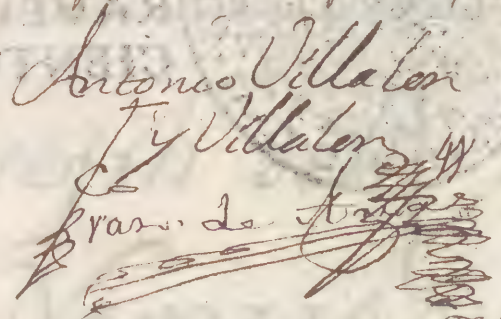 Antonio Villalon
y Villalon
Fran. de